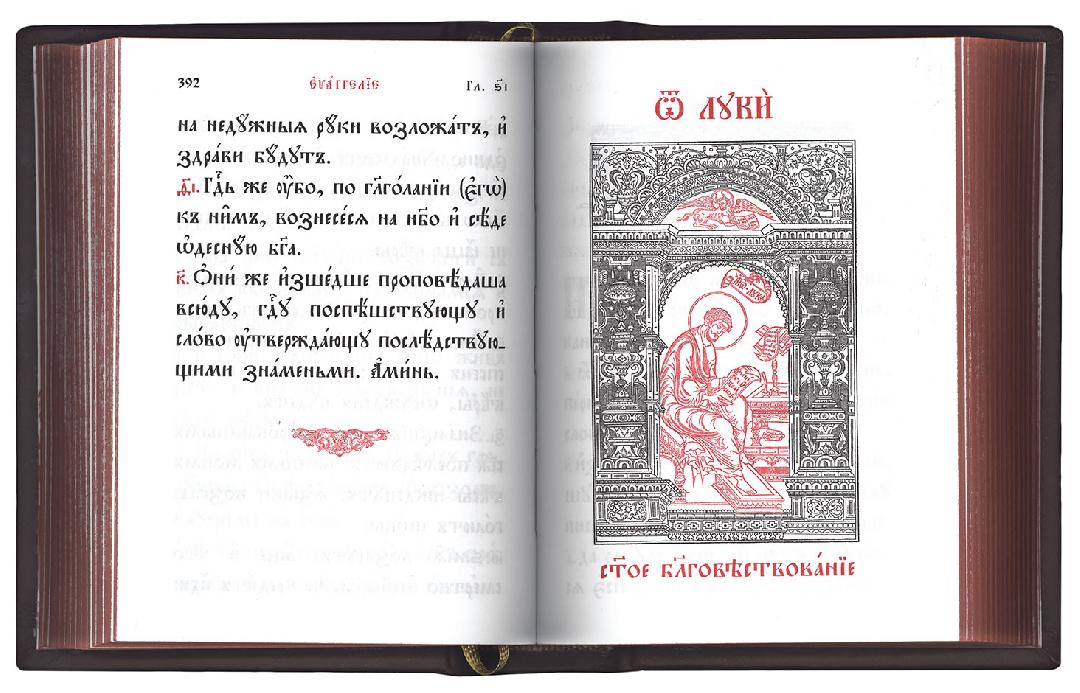 392 Є҆ѵа́ггелїе Гл. ѕ҃і
на недꙋжныѧ рꙋки возложа́тъ, и҆
здра́ви бꙋ́дꙋтъ.
Гдⷭ҇ь же ᲂу҆̀бо, по гл҃го́ланїи (є҆гѡ̀)
къ ни̑мъ, вознесе́сѧ на нб҃о и҆ сѣ́де
ѡ҆деснꙋ́ю бг҃а.
к҃. Ѻ҆ни́ же и҆зше́дше проповѣ́даша
всю́дꙋ, гдⷭ҇ꙋ поспѣшствꙋющꙋ и҆
сло́во ᲂу҆твержда́ющꙋ послѣ́дствꙋю_
щими зна́меньми. А҆ми́нь.
Ѿ Лꙋкѝ
ст҃ое бл҃говѣствова́нїе